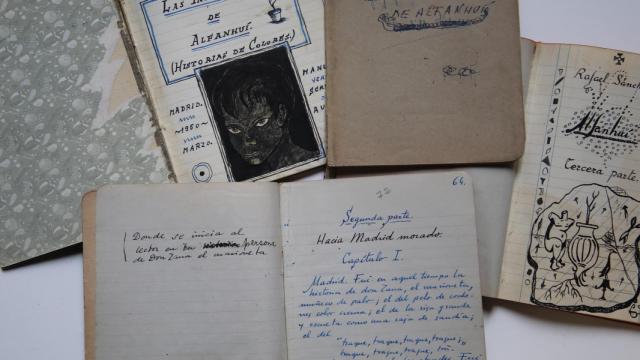 LAS IN
DE
ALFANHUÍ.
(HISTORIAS DE COLORES.)
MADRID.
~1950~
MARZO.
DE ALFANHUÍ
Rafael Sánch
Alfanhuí
Tercera parte.
Donde se inicia al
lector en la persona
de Don Zana el marioneta
66.
Segunda parte.
Hacia Madrid morado.
Capítulo I.
Madrid. Fué en aquel tiempo la
historia de don Zana, el marioneta,
muñeco de palo; el del pelo de
color crema; el de la risa grande
y escueta como una raja de sandía;
el del
"traque, traque, traque, traque;
traque, traque, traque,